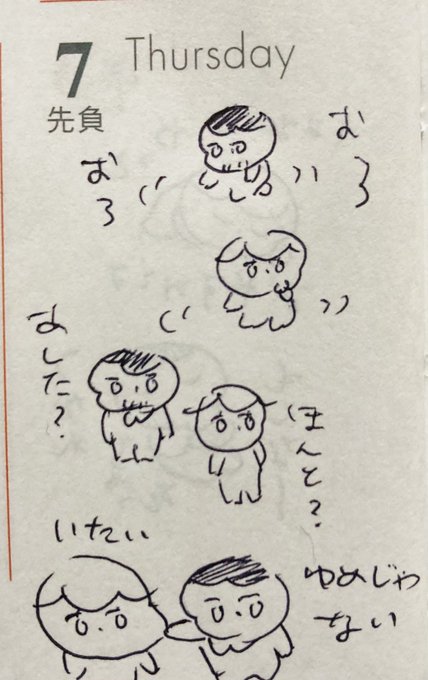 7 Thursday
先負
おろ
おろ
あした?
ほんと?
いたい
ゆめじゃ
ない